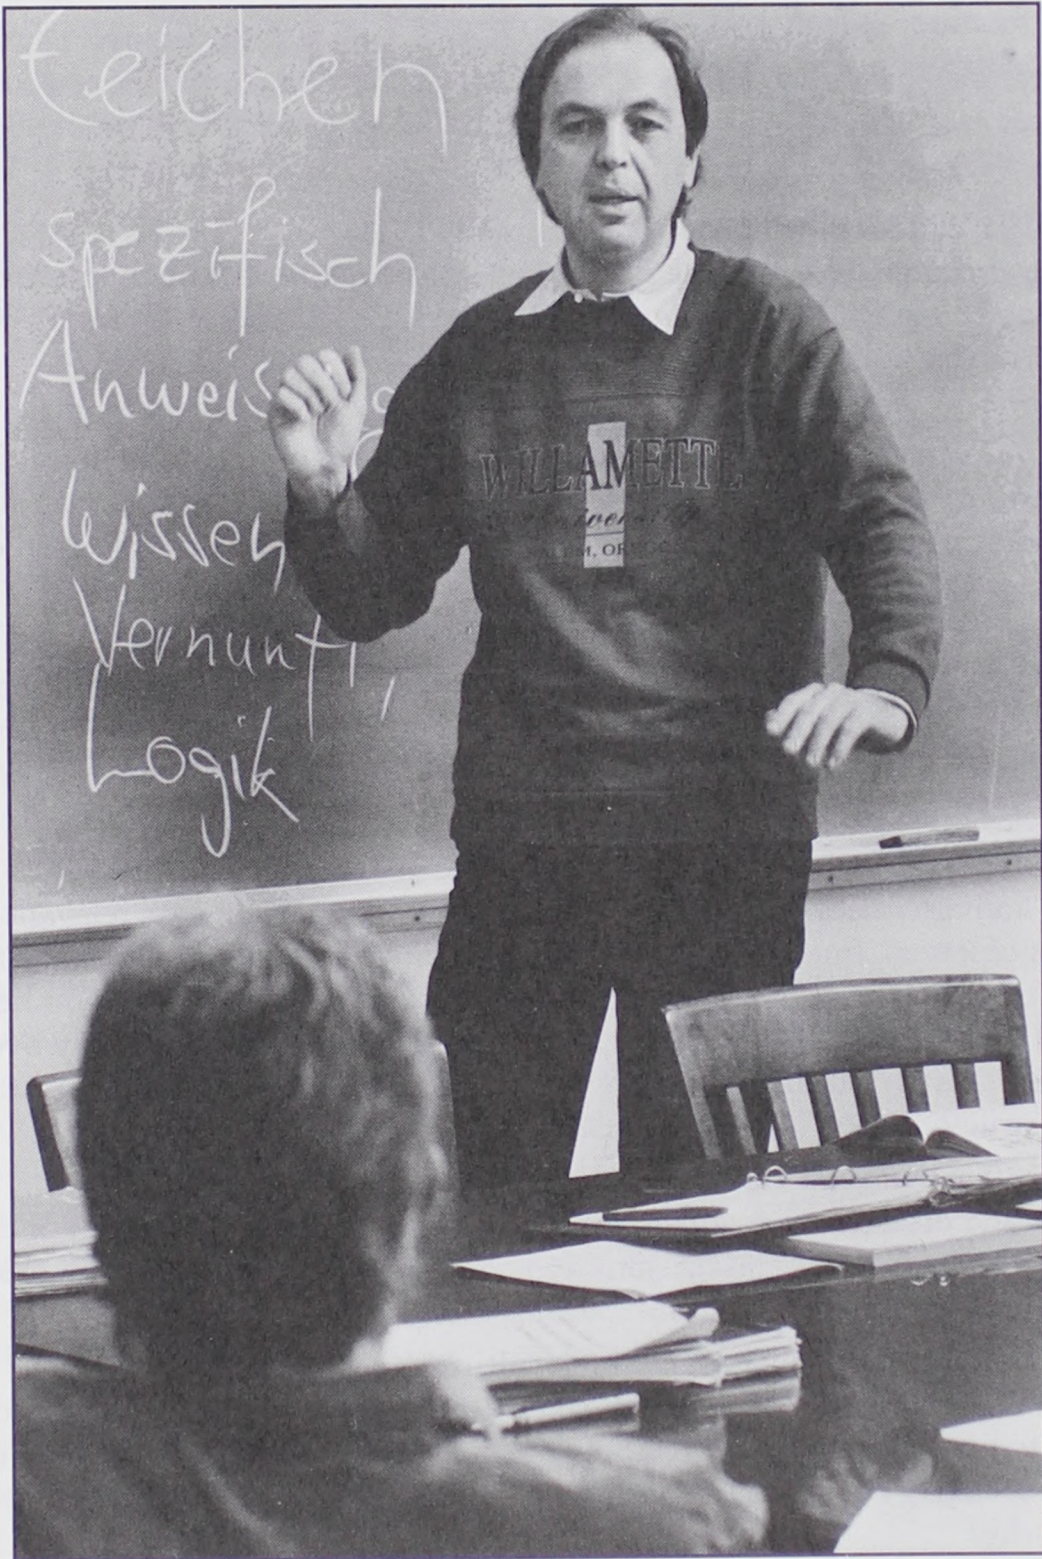 Zeichen
spezifisch
Anweis
Wissen
Vernunft,
Logik
WILLAMETTE